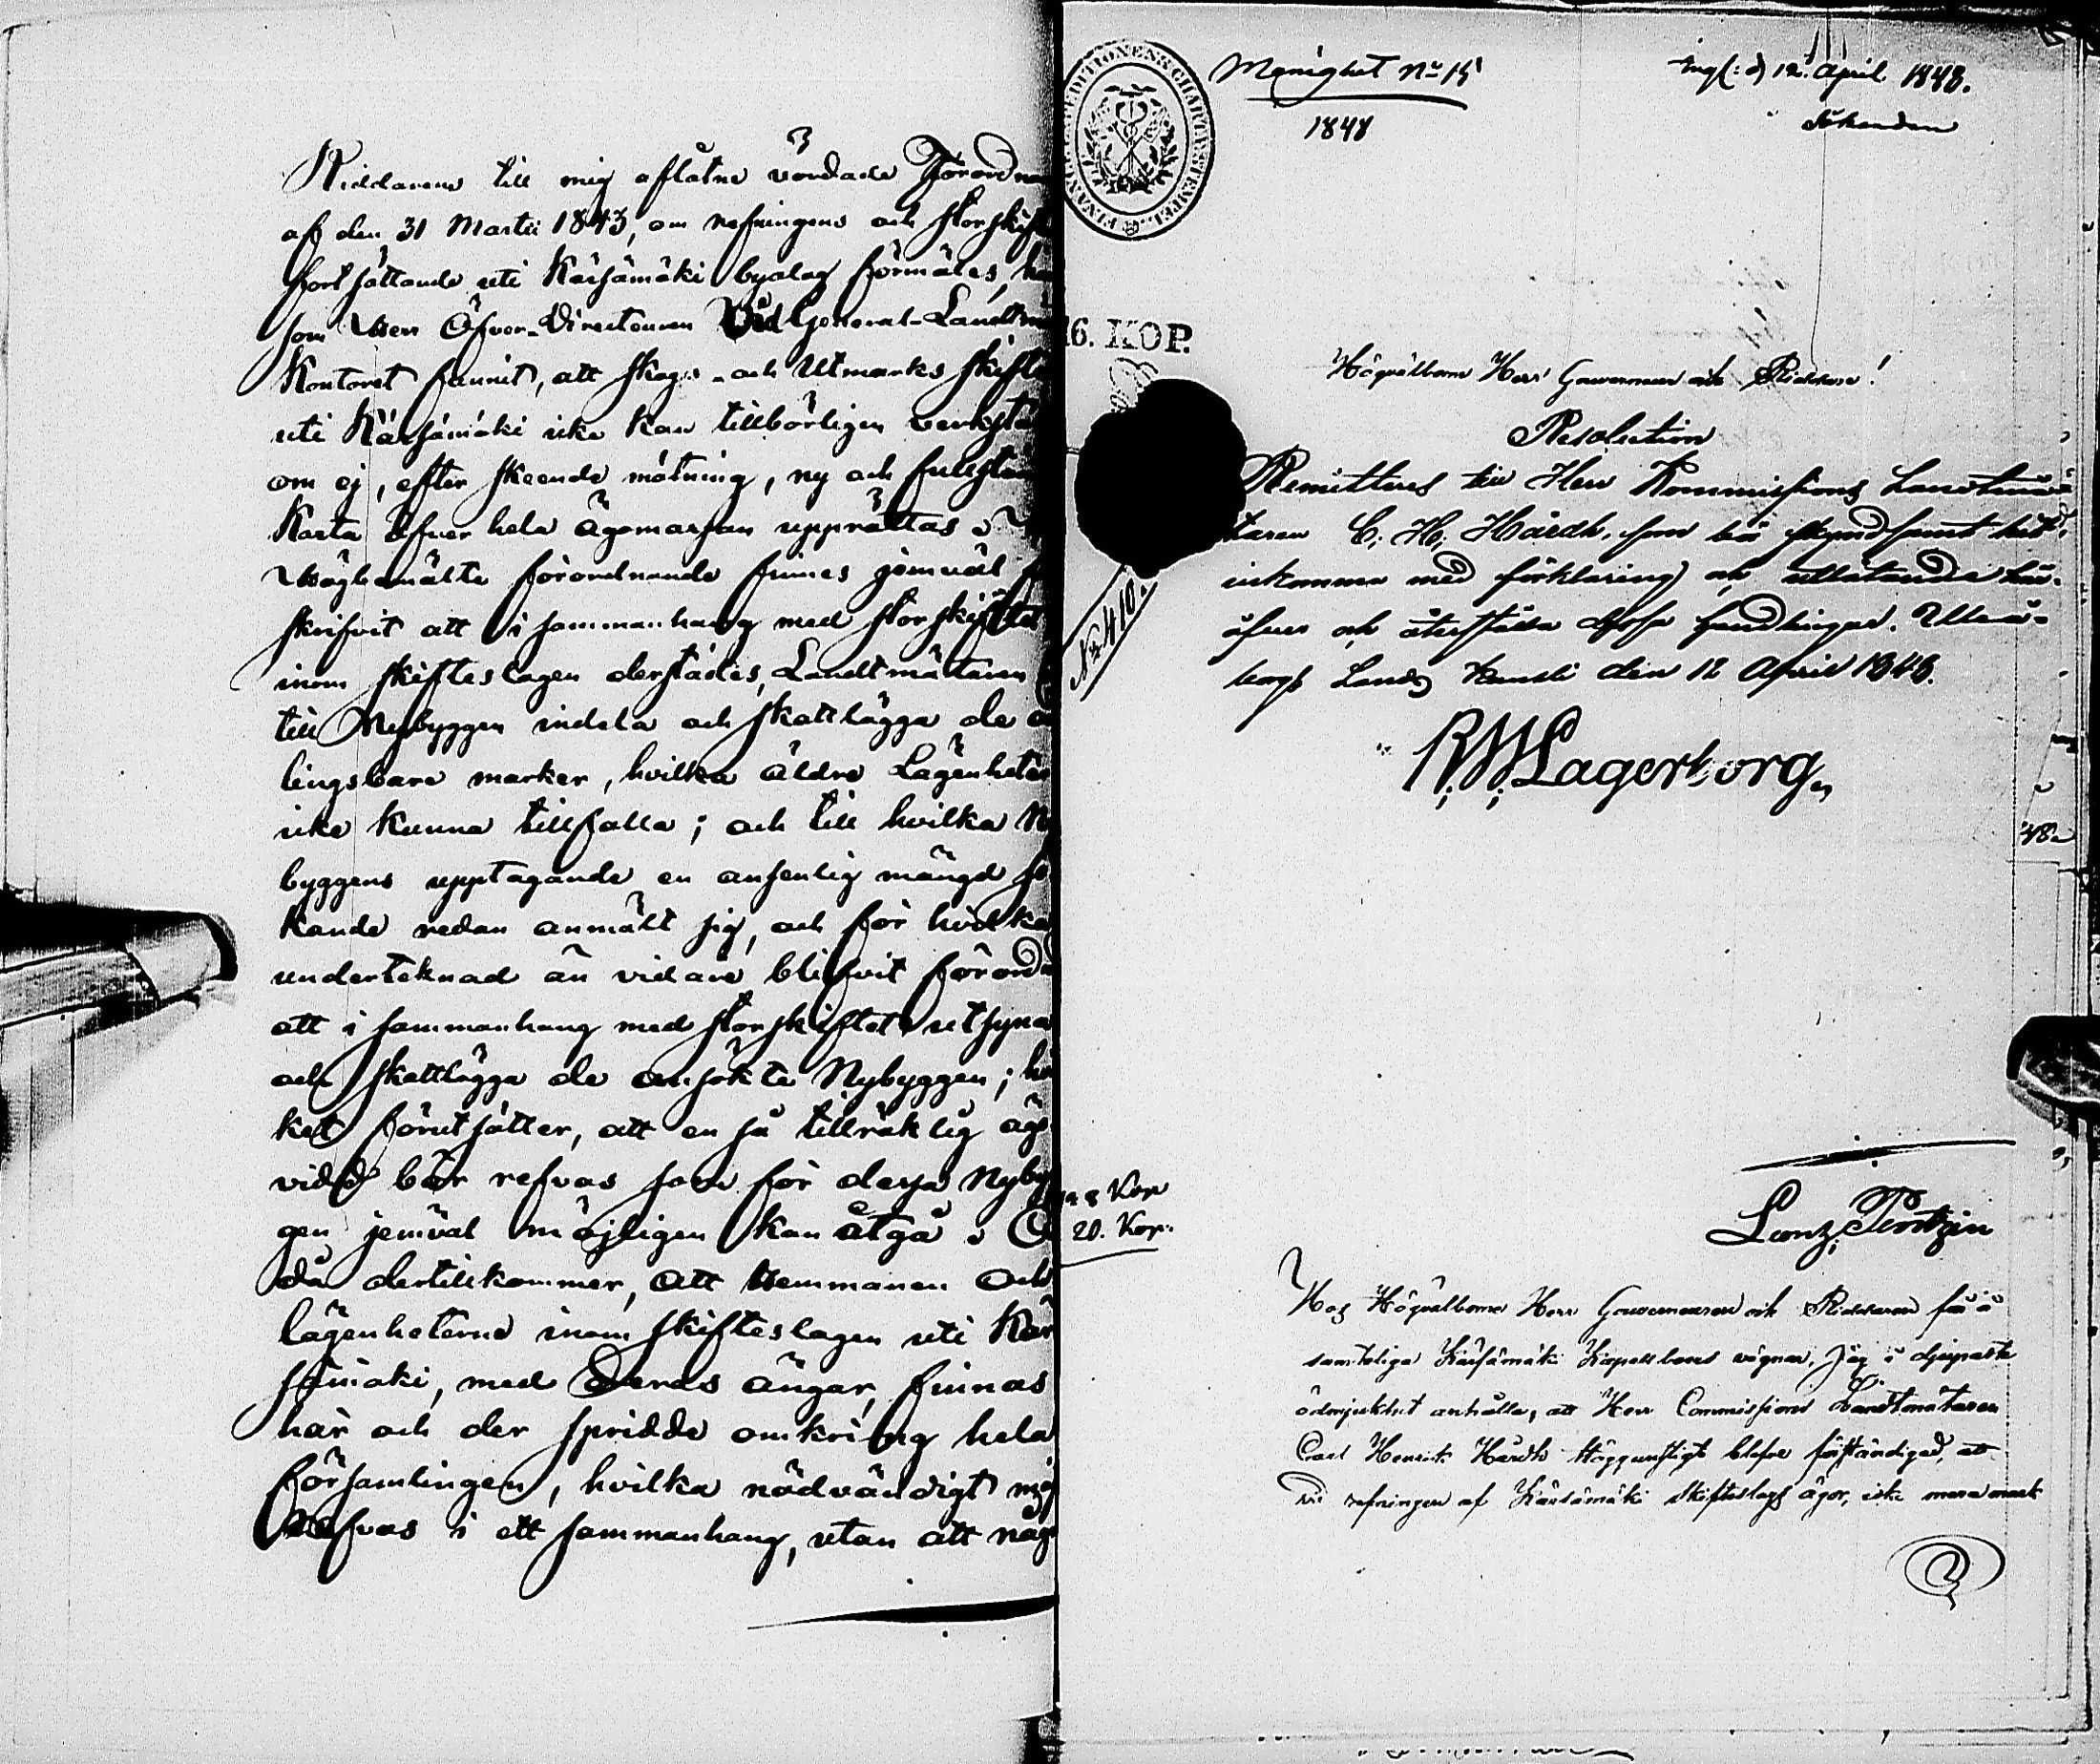 Riddarens till mig aflåtne vördade Förordna
af den 31 Martii 1843, om refningens och storskift
fortsättande uti Kärsämäki byalag förmäles, ha
som Herr Öfver-Directeuren Vid General-Landtmä
Kontoret funnit, att skogs- och Utmarks skifte
uti Kärsämäki icke kan tillbörligen verkstäl
om ej, efter skeende mätning, ny och fullstän
Karta öfver hela ägomassan upprättas.
Högbemälte förordnande finnes jemväl
skrifvit att i sammanhang med storskiftet
inom skifteslagen derstädes, Landtmätaren
till Nybyggen indela och skattlägga de o
lingsbare marker, hvilka äldre Lägenheter
icke kunna tillfalla; och till hvilka Ny
byggens upptagande en ansenlig mängd sö
kande redan anmält sig, och för hvilka
underteknad än vidare blifvit förord
att i sammanhang med storskiftet utsyna
och skattlägga de ansökta Nybyggen; hvil
ket förutsätter, att en så tillräklig ägo
vidd bör refvas som för dessa Nyby
gen jemväl möjligen kan åtgå.
då dertillkommer, att Hemmanen och
lägenheterne inom skifteslagen uti Kär
sämäki, med Deras ängar, finnas
här och der spridde omkring hela
församlingen, hvilka nödvändigt må
refvas i ett sammanhang, utan att någ
FINANCE EXPEDITIONENS CHARTÆ STEMPEL
16. KOP.
No 410.
28 Kop
20. Kop.
Menighet No 15
1848
Ing(: d 12 April 1848.
Sökanden
Högvälborne Herr Gouverneur och Riddare!
Resolution
Remitteres till Herr Kommissions Landtmä-
taren C. H. Hårdh, som bör skyndsamt hit
inkomma med förklaring och utlåtande här-
öfver och återställa dessa handlingar. Uleå-
borgs Lands Kansli den 12 April 1848.
R W Lagerborg
Lanz, Pentzin
Hos Högvälborne Herr Gouverneuren och Riddaren får å
samteliga Kärsämäki Kapellboers vägnar, Jag i djupaste
ödmjukhet anhålla, att Herr Commissions Landtmätaren
Carl Henrik Hårdh Höggunstligt blefve förständigad, att
vid refningen af Kärsämäki skifteslags ägor, icke mera mark